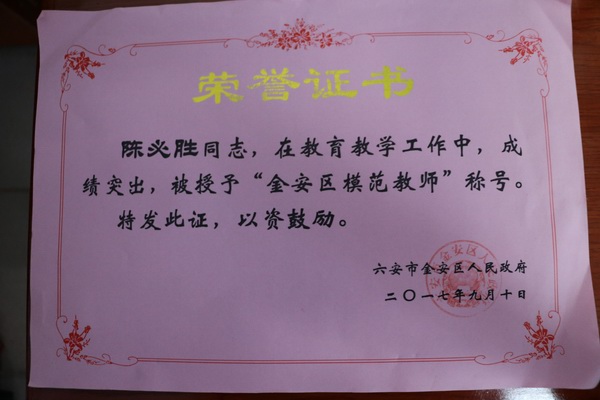 荣誉证书
陈必胜同志，在教育教学工作中，成
绩突出，被授予“金安区模范教师”称号。
特发此证，以资鼓励。
六安市金安区人民政府
二〇一七年九月十日